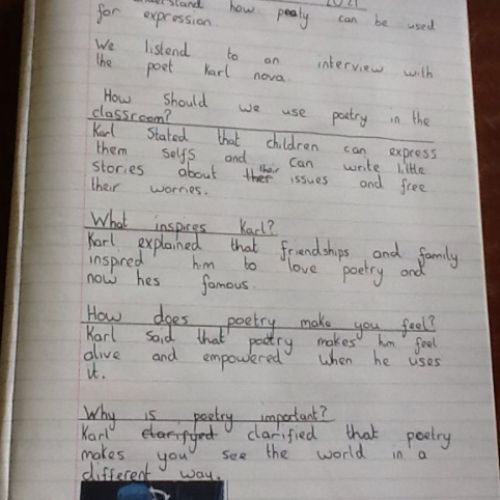 2021
understand how poety can be used
for expression
We listend to an interview with
the poet Karl nova.
How should we use poetry in the
classroom?
Karl Stated that children can express
them selfs and can write little
stories about ther their issues and free
their worries.
What inspires Karl?
Karl explained that friendships and family
inspired him to love poetry and
now hes famous.
How does poetry make you feel?
Karl said that poetry makes him feel
alive and empowered when he uses
it.
Why is poetry important?
Karl clarifyed clarified that poetry
makes you see the world in a
different way.